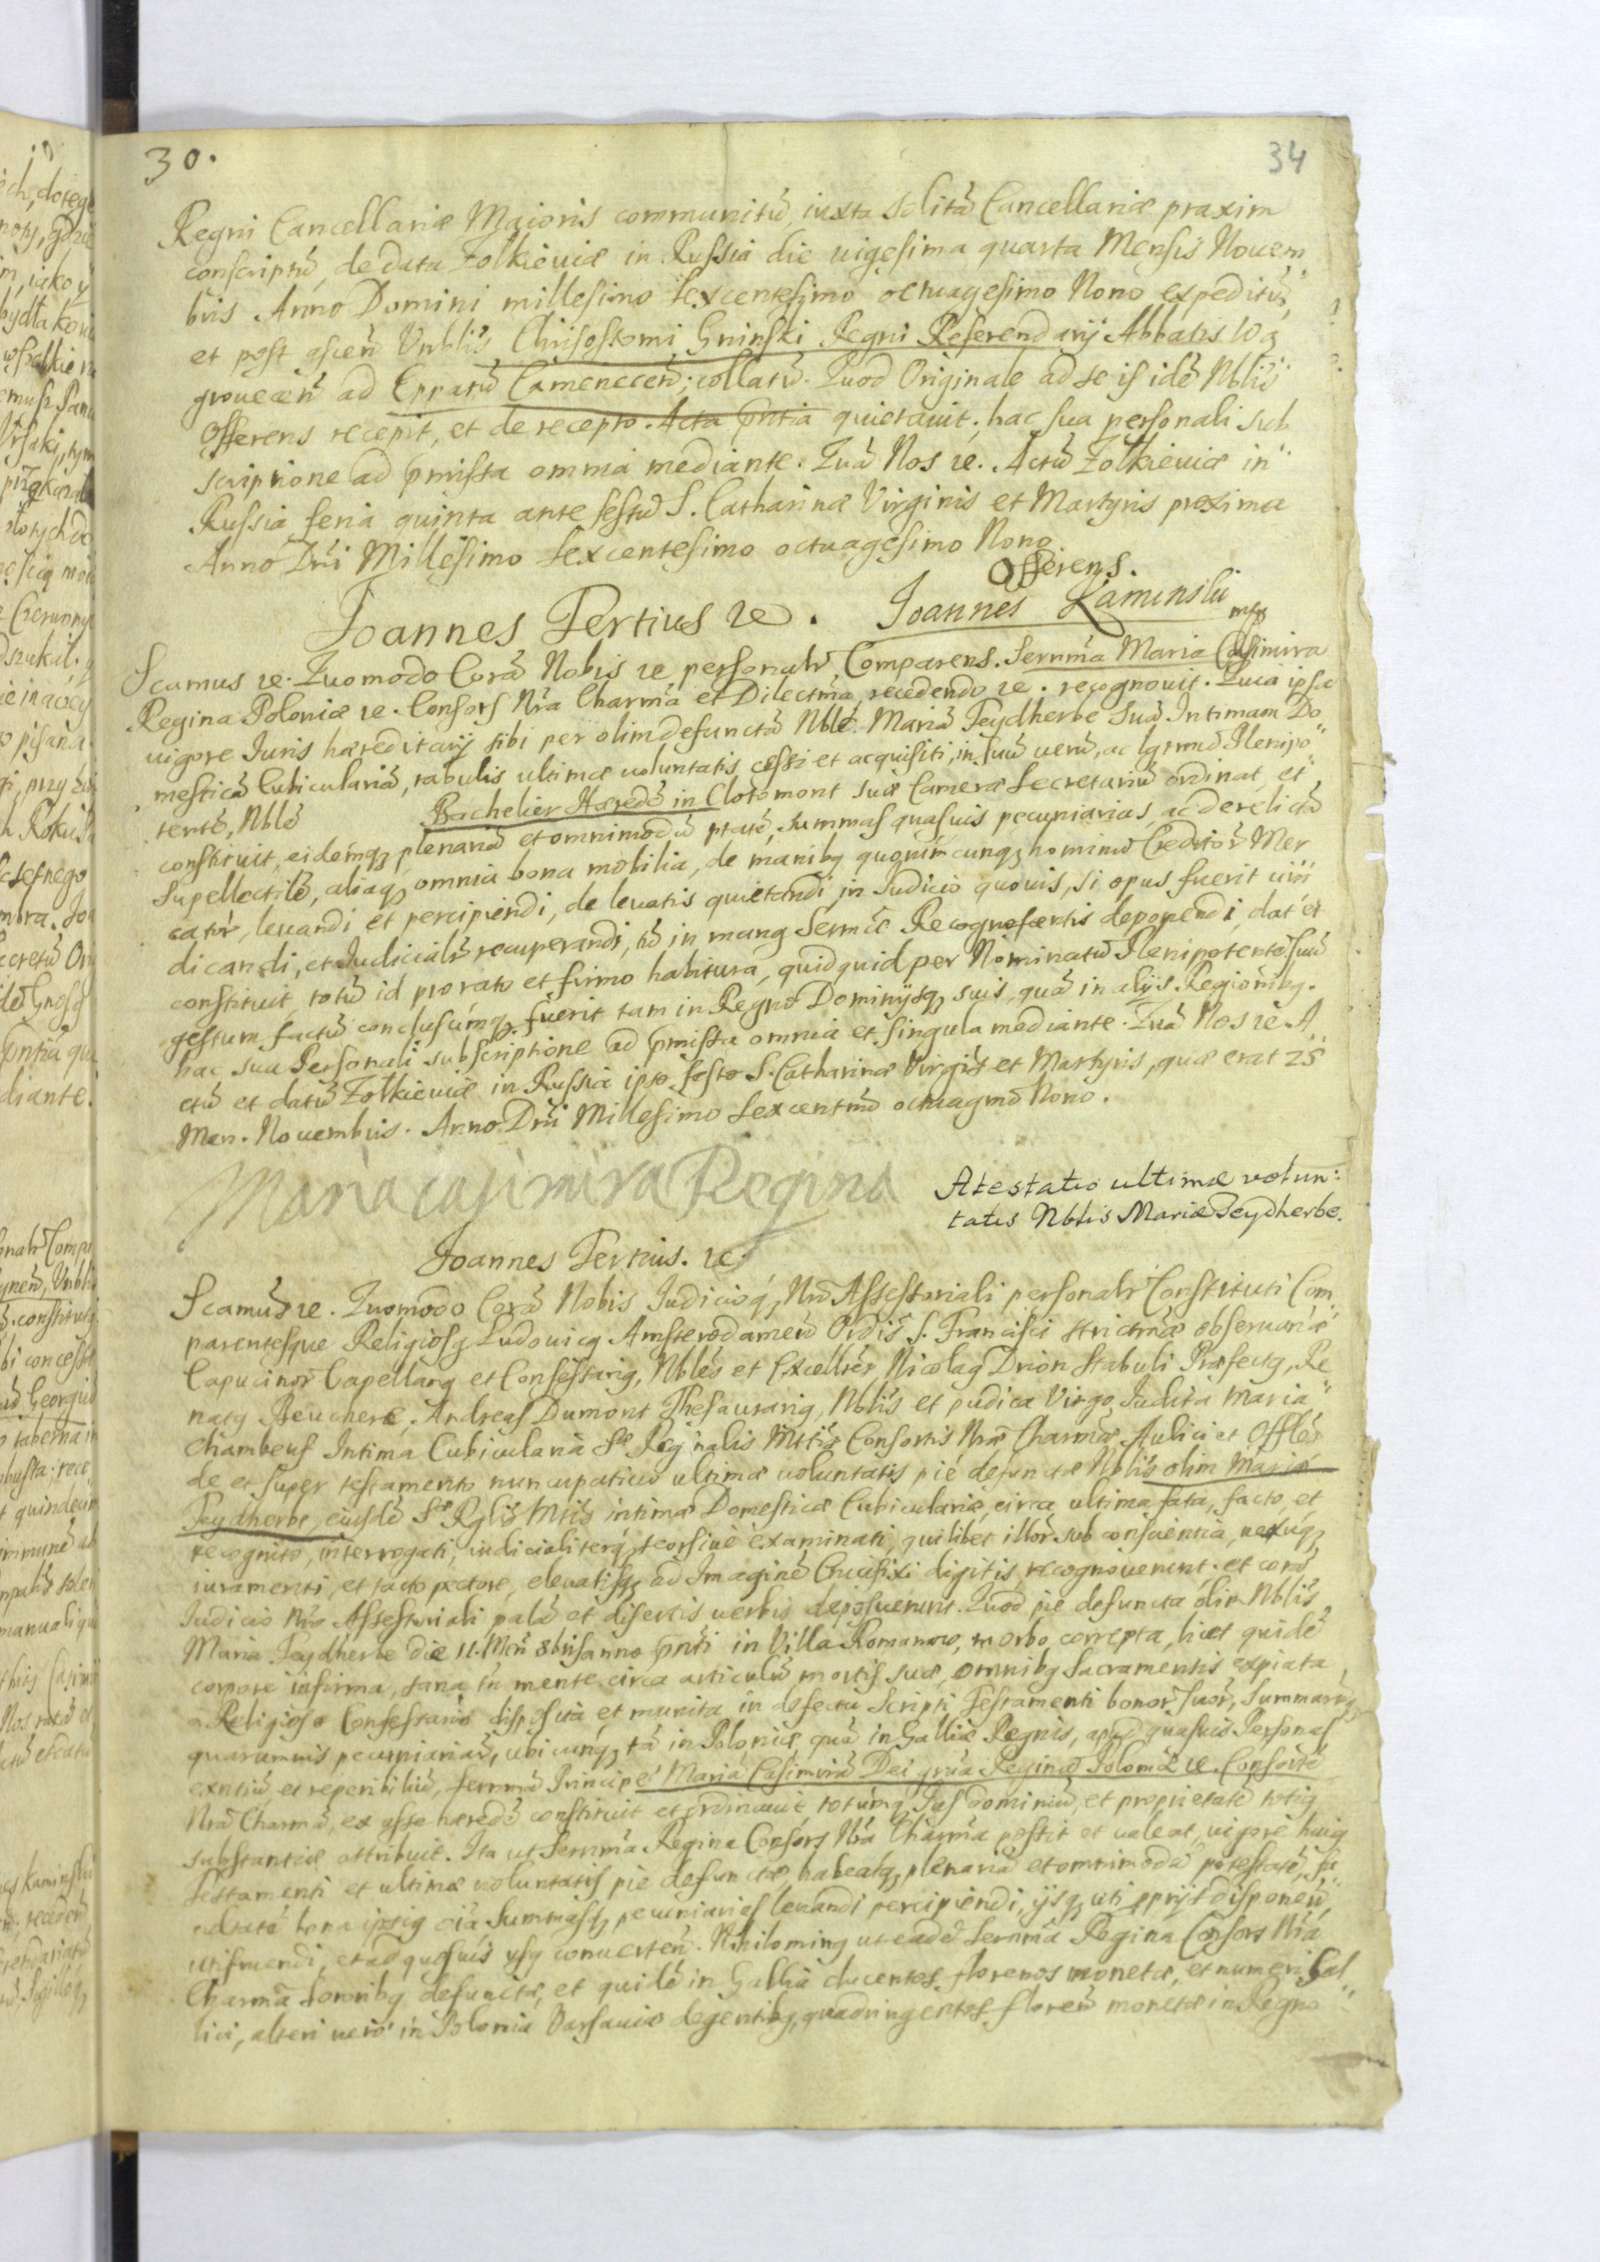 30.
34
Regni Cancellariæ Maioris communitũ, iuxta solitã Cancellariæ praxim
conscriptũ, de data Zolkieuiæ in Russia die uigesima quarta Mensis Nouem
bris Anno Domini millesimo sexcentesimo octuagesimo Nono expeditũ,
et post ascen Urblis Chrisostomi Gninski Regni Referendarij Abbatis Wą
groueceñ ad Eppatũ Cameneceñ; collatũ. Quod Originale ad se is idẽ Nblis
Offerens recepit, et de recepto Acta pñtia quietauit; hac sua personali sub
scriptione ad pmissa omnia mediante. Quã Nos rc. Actũ Zolkieuiæ in
Russia feria quinta ante festũ S. Catharinæ Virginis et Martyris proxima
Anno Dñi Millesimo Sexcentesimo octuagesimo Nono
Offerens.
Joannes Tertius rc. Joannes Kaminski mpp
Scamus rc. Quomodo Corã Nobis rc. personalr Comparens. Sernma Maria Casimira
Regina Poloniæ rc. Consors Nra Charma et Dilectma, recedendo rc. recognouit. Quia ipsa
uigore Iuris hæreditarij sibi per olim defunctã Nblẽ Mariã Feydherbe Suã Intimam Do
mesticã Cubiculariã, tabulis ultimæ uoluntatis cessi et acquisiti, in suũ uerũ, ac lgtmũ Plenipo
tentẽ, Nblẽ Bachelier Hæredẽ in Clotomont suæ Cameræ Secretariũ ordinat, et
constituit, eidemq; plenariã et omnimodã ptatẽ, Summas quasuis pecuniarias, ac derelictã
Supellectilẽ, aliaq; omnia bona mobilia, de manibq quorumcunq; hominũ Creditor Mer
cator, leuandi et percipiendi, de leuatis quietandi, in Judicio quouis, si opus fuerit uin
dicandi, et Judicialr recuperandi, tũ in manq Sermæ Recognoscentis deponendi, dat et
constituit, totũ id pro rato et firmo habitura, quidquid per Nominatũ Plenipotentẽ suũ
gestum factũ conclusumq; fuerit tam in Regno Dominijsq; suis, quã in alijs Regionibq.
hac sua Personali subscriptione ad pmissa omnia et singula mediante. Quã Nos rc. A
ctũ et datũ Zolkieuiæ in Russia ipso festo S. Catharinæ Virgis et Martyris, quæ erat 25
Men. Nouembris. Anno Dñi Millesimo Sexcentmo octuagmo Nono.
Maria Casimira Regina
Atestatio ultimæ volun:
tatis Nblis Mariæ Feydherbe.
Joannes Tertius. rc.
Scamus rc. Quomodo Corã Nobis Judicioq; Nro Assessoriali personalr Constituti Com
parentesque Religiosq Ludouicq Amsterodameñ Ordis S. Francisci strictmæ obseruanæ
Capucinor Capellanq et Confessariq, Nbles et Excellres, Nicolaq Drion Stabuli Præfectq, Re
natq Beuchere, Andreas Dumont Thesaurariq, Nblis et pudica Virgo Judita Maria
Chambeuf Intima Cubicularia Sæ Reginalis Mttis Consortis Nræ Charmæ, Aulici et Offles
de et super testamento nuncupatiuo ultimæ uoluntatis pie defunctæ Nblis olim Mariæ
Feydherbe, eiusdẽ Sæ Rglis Mtis intimæ Domesticæ Cubiculariæ, circa ultima fata, facto et
recognito, interrogati, iudicialiterq; seorsiue examinati, quilibet illor sub conscientia, nexuq;
iuramenti, et tacto pectore, eleuatisq; ad Imaginẽ Crucifixi digitis, recognouerunt. et corã
Iudicio Nro Assessoriali palã et disertis uerbis deposuerunt. Quod pie defuncta olim Nblis
Maria Feydherbe die 11. Men 8bris anno pñti in Villa Romanow, morbo correpta, licet quidẽ
corpore infirma, sana tñ mente circa articulũ mortis suæ, omnibq Sacramentis expiata,
a Religioso Confessario disposita et munita, in defectu Scripti Testamenti bonor suor, Summarũq;
quarumuis pecuniariarũ, ubicunq; tã in Poloniæ quã in Galliæ Regnis, apud quasuis Personas
exntiũ et reperibiliũ, Sernmã Principẽ Mariã Casimirã Dei gratia Reginã Poloniæ rc. Consortẽ
Nrã Charmã, ex asse hæredẽ constituit et ordinauit totumq; Jus dominiũ, et proprietatẽ totiq
substantiæ attribuit. Ita ut Sernma Regina Consors Nra Charma possit et ualeat, uigore huiq
Testamenti et ultimæ uoluntatis pie defunctæ, habeatq; plenariã et omnimodã potestatẽ, fa
cultatẽ bona ipsiq oia Summasq; pecuniarias leuandi percipiendi, ijsq; uti pprijs disponeñ,
utifruendi, et ad quosuis usq conuerteñ. Nihilominq ut eadẽ Sernma Regina Consors Nra
Charma sororibq defunctæ, et quidẽ in Gallia ducentos florenos monetæ, et numeri Gal
lici, alteri uero in Polonia Varsauiæ degentibq, quadringentos floreñ monetæ in Regno